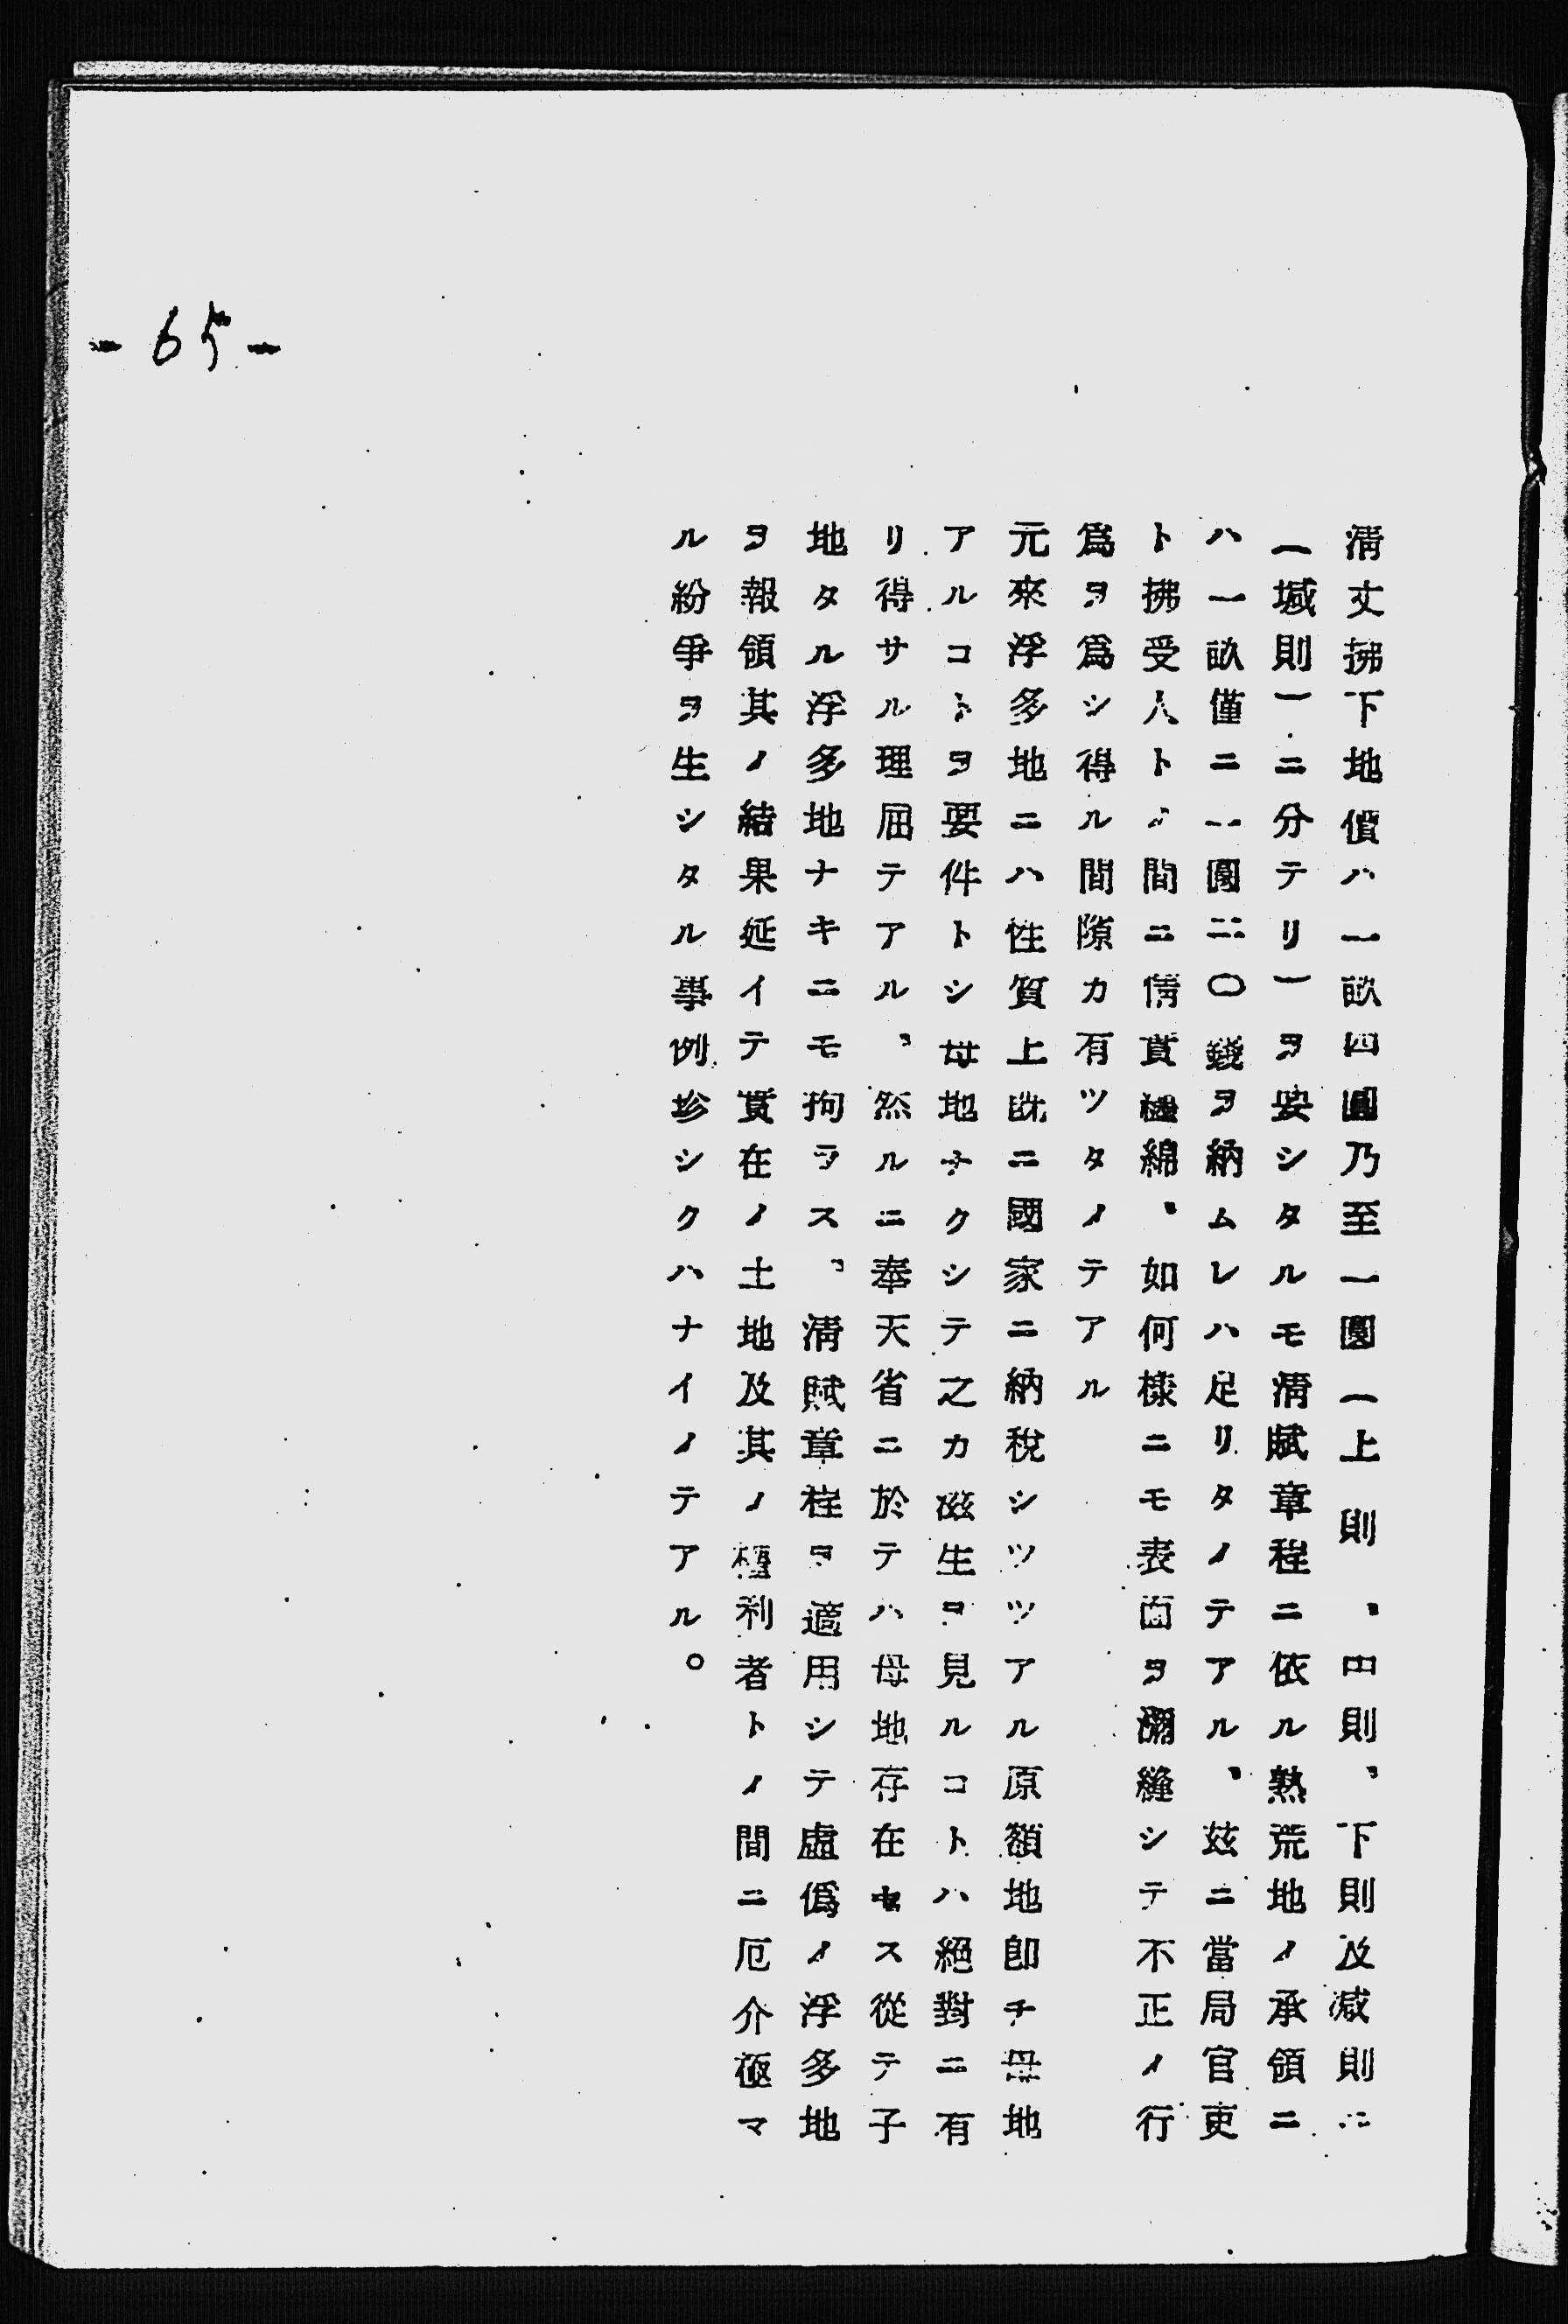 清丈拂下地價ハ一畝四圓乃至一圓(上則、中則、下則及減則ニ
(堿則)ニ分テリ)ヲ要シタルモ清賦章程ニ依ル熟荒地ノ承領ニ
ハ一畝僅ニ一圓二〇錢ヲ納ムレハ足リタノテアル、茲ニ當局官吏
ト拂受人トノ間ニ情實纏綿、如何樣ニモ表面ヲ彌縫シテ不正ノ行
爲ヲ爲シ得ル間隙カ有ツタノテアル
元來浮多地ニハ性質上既ニ國家ニ納稅シツツアル原額地卽チ母地
アルコトヲ要件トシ母地ナクシテ之カ滋生ヲ見ルコトハ絕對ニ有
リ得サル理屈テアル、然ルニ奉天省ニ於テハ母地存在セス從テ子
地タル浮多地ナキニモ拘ラス、清賦章程ヲ適用シテ虛僞ノ浮多地
ヲ報領其ノ結果延イテ實在ノ土地及其ノ權利者トノ間ニ厄介極マ
ル紛爭ヲ生シタル事例珍シクハナイノテアル。
-65-